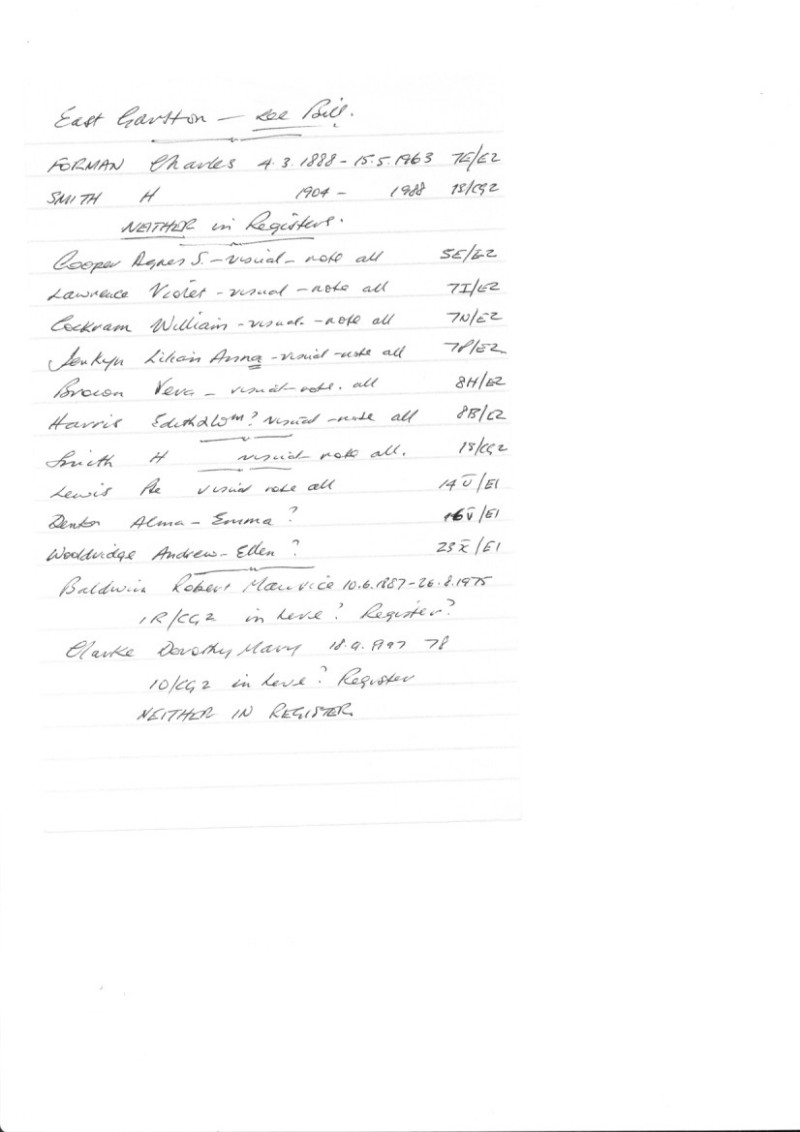 East Garston - see Bill.
FORMAN Charles 4.3.1888 - 15.5.1963 7E/E2
SMITH H 1904 - 1988 18/CG2
NEITHER in Registers.
Cooper Agnes S. - visual - note all 5E/E2
Lawrence Violet - visual - note all 7I/E2
Cockram William - visual - note all 7N/E2
Jenkyn Lilian Anna - visual - note all 7P/E2
Brown Vera - visual - note. all 8H/E2
Harris Edith & Wm? visual - note all 8B/E2
Smith H visual - note all. 18/CG2
Lewis visual note all 14 U/E1
Denton Alma - Emma? 16 V/E1
Wooldridge Andrew - Ellen? 23 X/E1
Baldwin Robert Maurice 10.6.1887 - 26.8.1975
1R/CG2 in here? Register?
Clarke Dorothy Mary 18.9. 78
10/CG2 in here? Register
NEITHER IN REGISTER